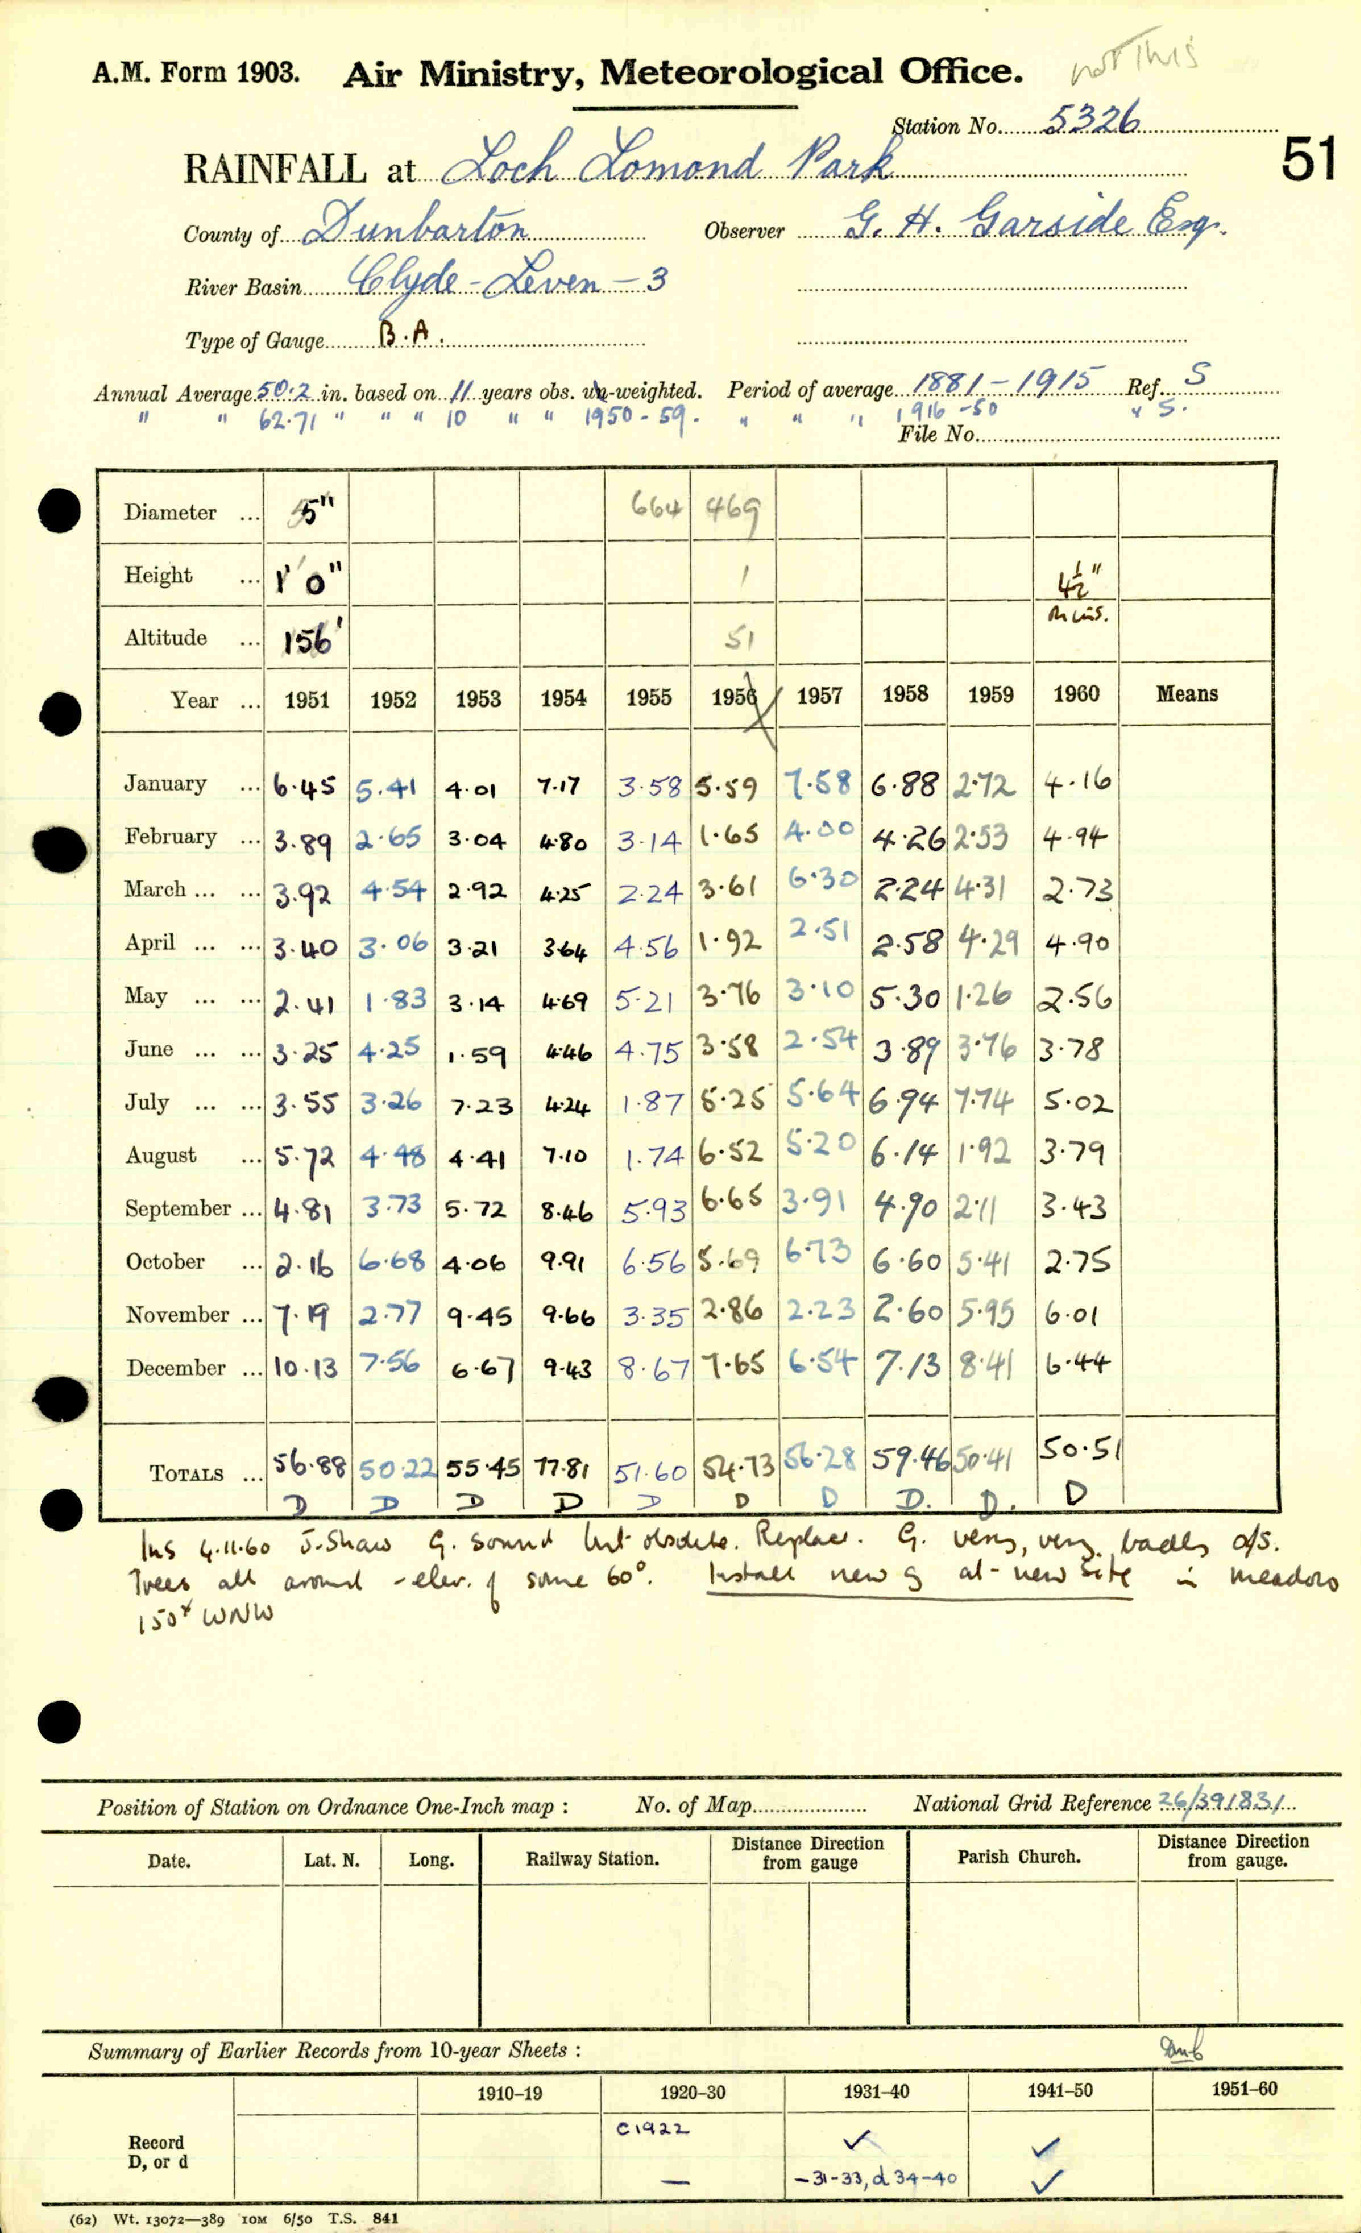 not this
A.M. Form 1903. Air Ministry, Meteorological Office.
Station No. 5326
51
RAINFALL at Loch Lomond Park
County of Dunbarton Observer G. H. Garside Esq.
River Basin Clyde - Leven - 3
Type of Gauge B.A.
Annual Average 50.2 in. based on 11 years obs. un-weighted. Period of average 1881-1915 Ref. S
" " 62.71 " " " 10 " " 1950-59. " " " 1916-50 " S.
File No.
Diameter ... 5" 664 469
Height ... 1'0" 1 4½"
Altitude ... 156' 51
Year ... 1951 1952 1953 1954 1955 1956 1957 1958 1959 1960 Means
January ... 6.45 5.41 4.01 7.17 3.58 5.59 7.58 6.88 2.72 4.16
February ... 3.89 2.65 3.04 4.80 3.14 1.65 4.00 4.26 2.53 4.94
March ... ... 3.92 4.54 2.92 4.25 2.24 3.61 6.30 2.24 4.31 2.73
April ... ... 3.40 3.06 3.21 3.64 4.56 1.92 2.51 2.58 4.29 4.90
May ... ... 2.41 1.83 3.14 4.69 5.21 3.76 3.10 5.30 1.26 2.56
June ... ... 3.25 4.25 1.59 4.46 4.75 3.58 2.54 3.89 3.76 3.78
July ... ... 3.55 3.26 7.23 4.24 1.87 5.25 5.64 6.94 7.74 5.02
August ... 5.72 4.48 4.41 7.10 1.74 6.52 5.20 6.14 1.92 3.79
September ... 4.81 3.73 5.72 8.46 5.93 6.65 3.91 4.90 2.11 3.43
October ... 2.16 6.68 4.06 9.91 6.56 5.69 6.73 6.60 5.41 2.75
November ... 7.19 2.77 9.45 9.66 3.35 2.86 2.23 2.60 5.95 6.01
December ... 10.13 7.56 6.67 9.43 8.67 7.65 6.54 7.13 8.41 6.44
TOTALS ... 56.88 50.22 55.45 77.81 51.60 54.73 56.28 59.46 50.41 50.51
D D D D D D D D. D. D
Ins 4.11.60 J. Shaw G. sound but obsolete. Replace. G. very, very badly o/s.
Trees all around - elev. of some 60°. Install new g at new site in meadow
150x WNW
Position of Station on Ordnance One-Inch map : No. of Map National Grid Reference 26/391831
Date. Lat. N. Long. Railway Station. Distance Direction from gauge Parish Church. Distance Direction from gauge.
Summary of Earlier Records from 10-year Sheets :
1910-19 1920-30 1931-40 1941-50 1951-60
Record C1922 ✓ ✓
D, or d — -31-33, d 34-40 ✓
(62) Wt. 13072—389 10M 6/50 T.S. 841